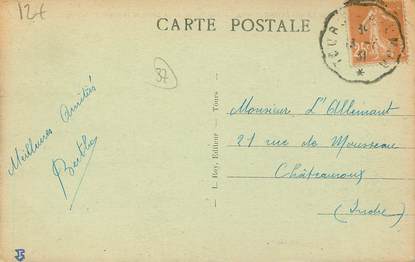 12€
CARTE POSTALE
37
Meilleures Amitiés
Berthe
L. Rey, Editeur - Tours
25c
TOUR
Monsieur L'Allemant
21 rue de Mousseau
Châteauroux
(Indre)